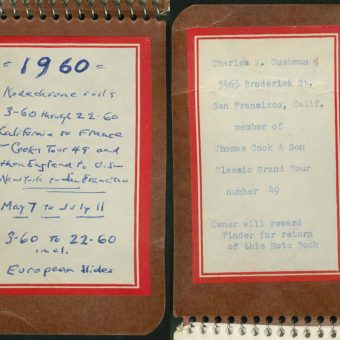 = 1960 =
Kodachrome rolls
3-60 through 22-60
California to France
Cook's Tour 49 and
then England to U.S.
New York - San Francisco
May 7 to July 11
3-60 to 22-60
incl.
European Slides
Charles W. Cushman
3465 Broderick St.
San Francisco, Calif.
member of
Thomas Cook & Son
Classic Grand Tour
number 49
Owner will reward
finder for return
of this Note Book